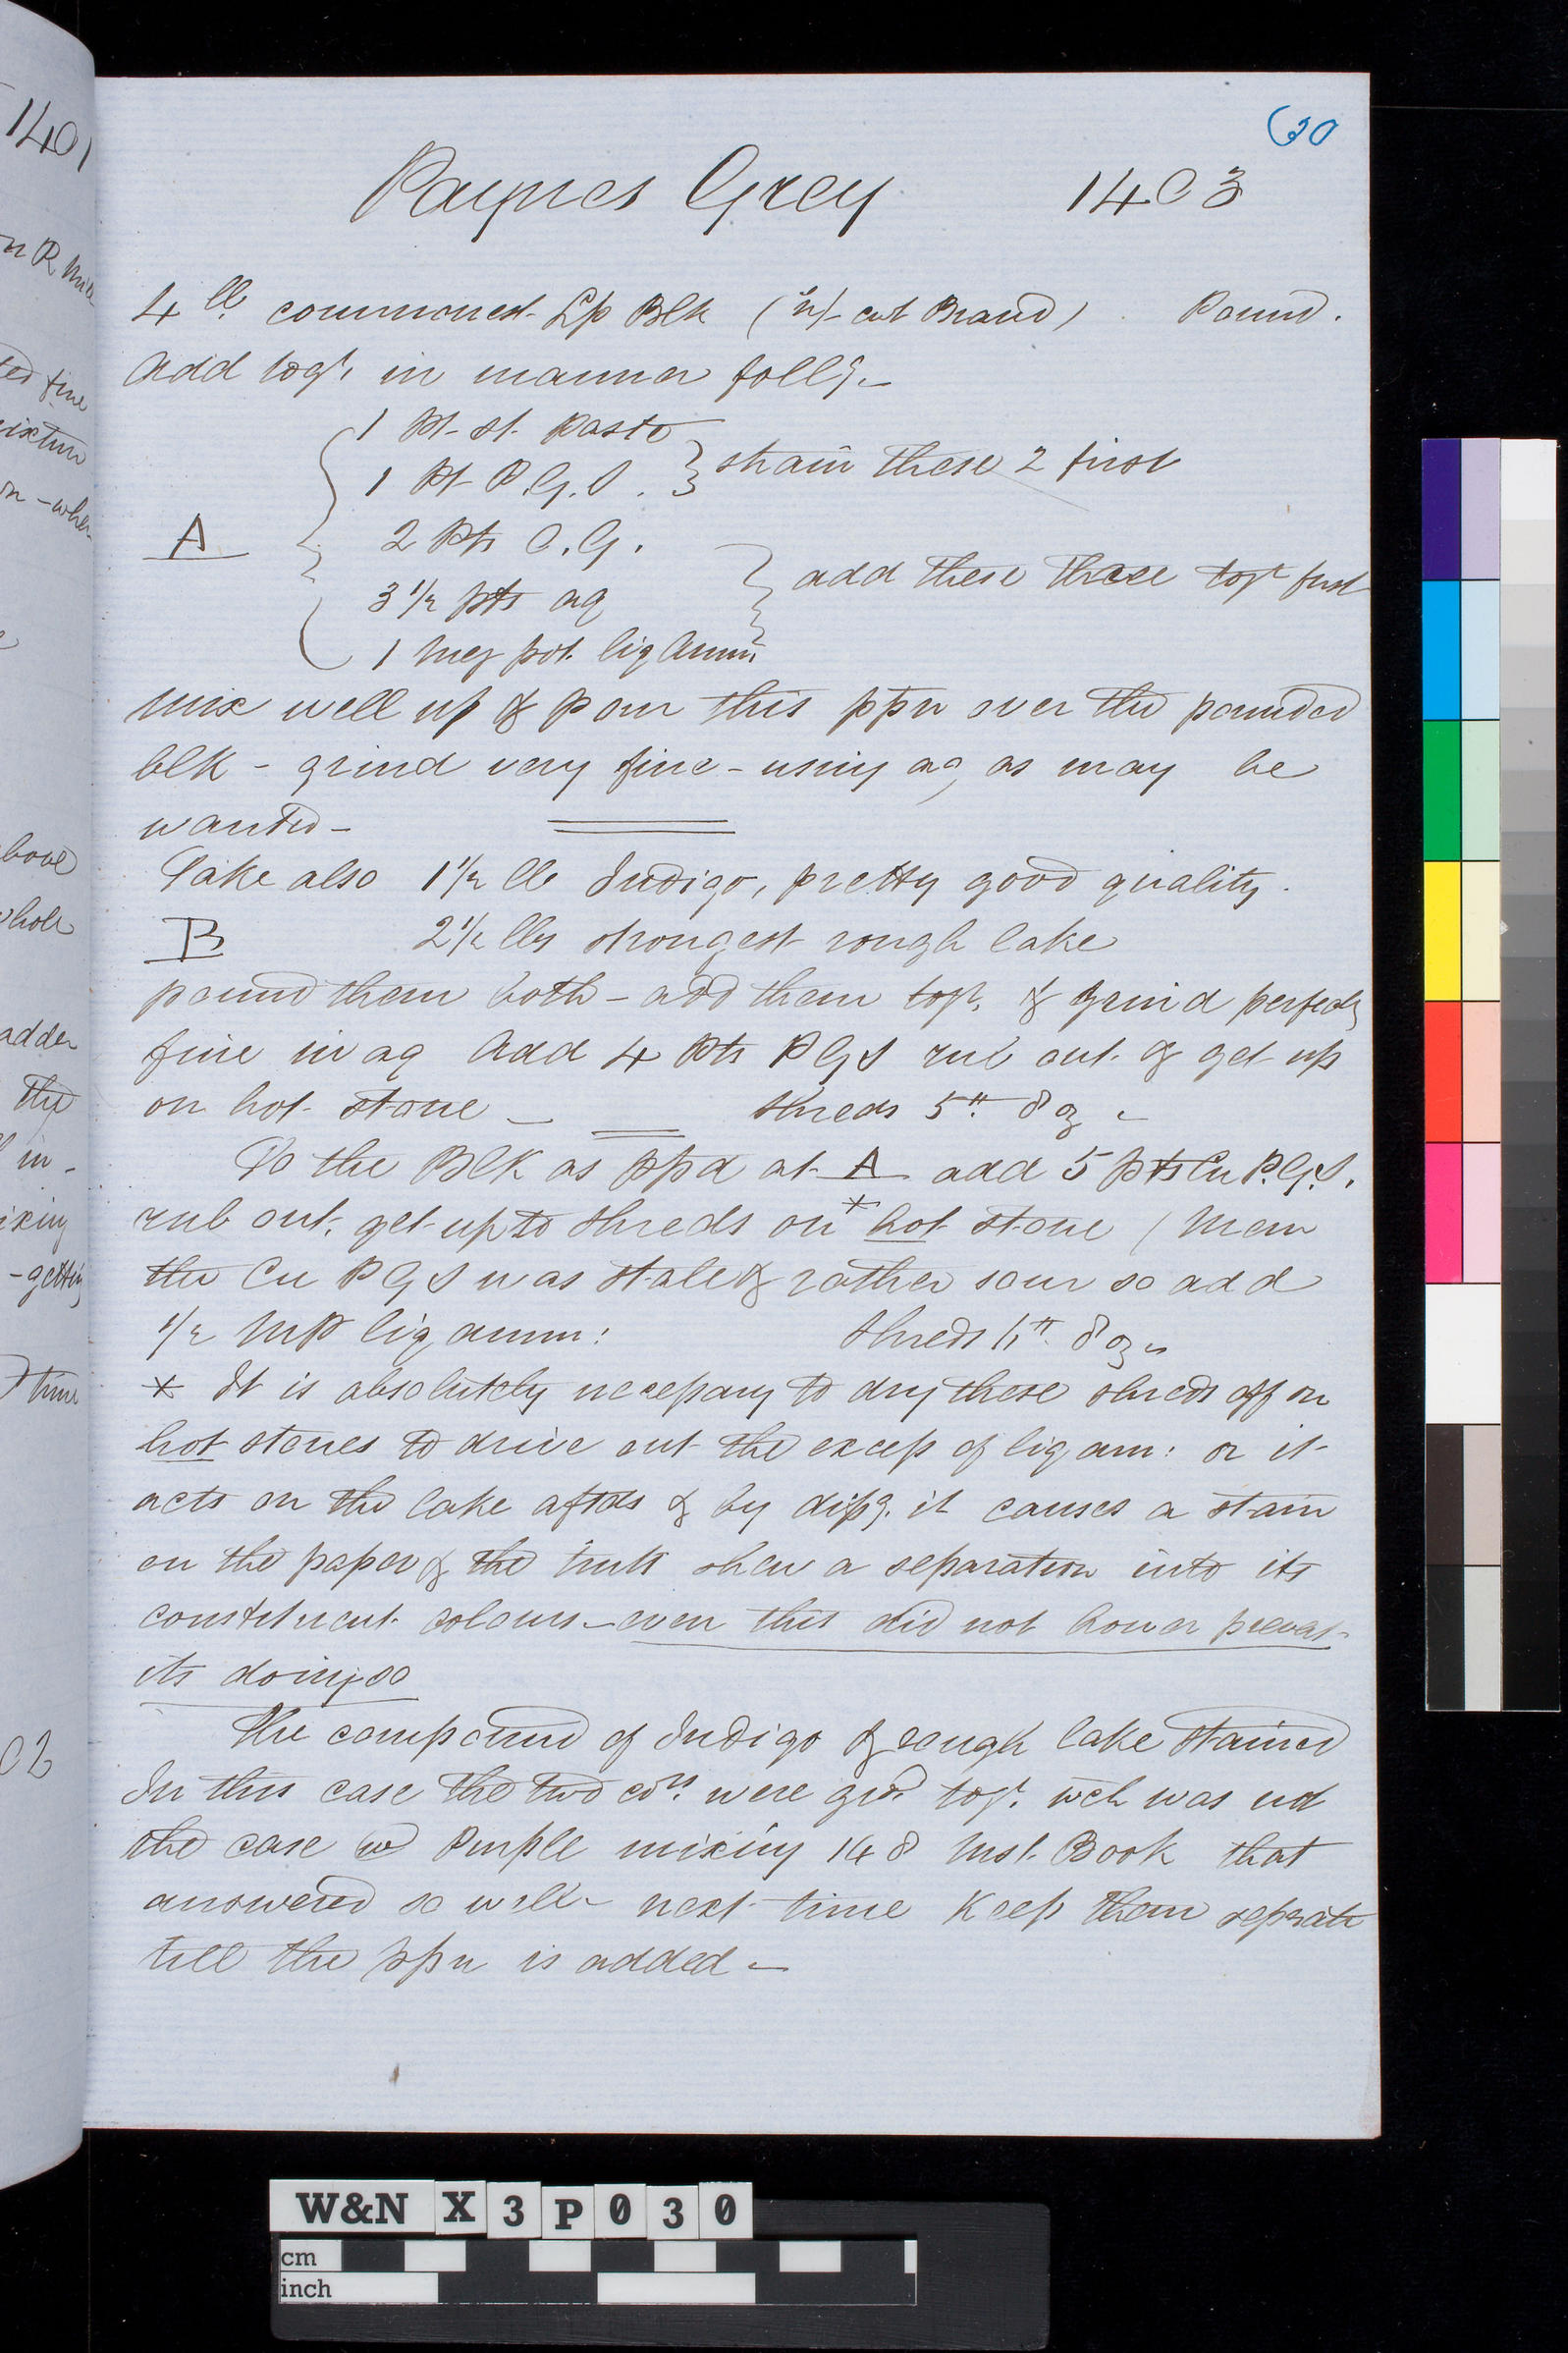 30
Paynes Grey 1403
4 lb commonest Lp Blk ( cut Brand) Pound.
Add togr. in manner follg.-
1 Pt st. paste
1 Pt P.G.S. } strain these 2 first
A
2 Pts C.G.
3 1/2 pts aq } add these these togr first
1 Meg pot. liq Amm:
mix well up & pour this ppn over the pounded
blk - grind very fine - using aq as may be
wanted -
Take also 1 1/2 lb Indigo, pretty good quality.
B 2 1/2 lbs strongest rough lake
pound them both - add them togr. & grind perfectly
fine in aq Add 4 Pts PGS rub out & get up
on hot stone - shreds 5 lb 8 oz -
To the Blk as ppd at A add 5 pts Cn P.G.S.
rub out, get up to shreds on * hot stone ( Mem
the Cn PGS was stale & rather sour so add
1/2 MP liq amm: shreds 8 oz
* It is absolutely necessary to dry these shreds off on
hot stones to drive out the excess of liq am: or it
acts on the lake aftds & by dipg. it causes a stain
on the paper & the tints shew a separation into its
constituent colours - even this did not howr prevent
its doing so
The compound of Indigo & rough lake stained
In this case the two cors. were grd. togr. wch was not
the case w Purple mixing 148 Mst. Book that
answered so well - next time Keep them separate
till the ppn is added -
1401
on R Mill
ted fine
ixture
on - when
bove
whole
adder
the
in -
ixing
- getting
time
02
W&N X3P030
cm
inch